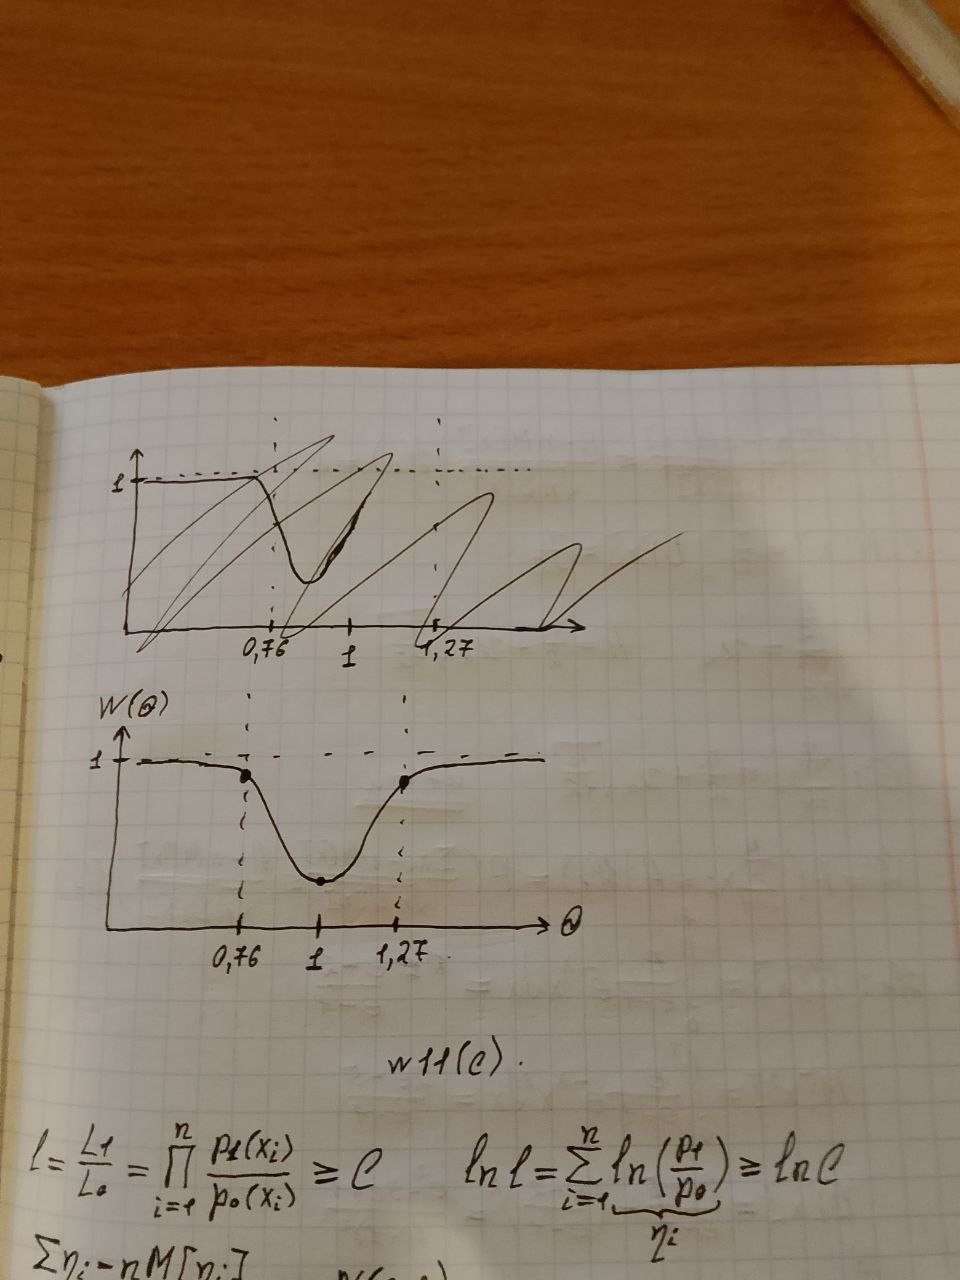 1
0,76 1 1,27
W(Θ)
1
0,76 1 1,27
Θ
w11(c).
l = L1/L0 = ∏_{i=1}^{n} p1(xi)/p0(xi) ≥ C   ln l = Σ_{i=1}^{n} ln(p1/p0) ≥ ln C
ηi
Σηi - nM[ηi]